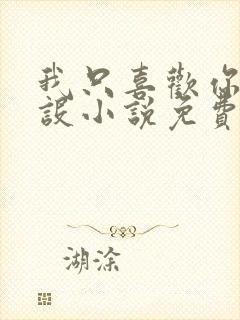 我只喜歡你
設小說免費
湖涂